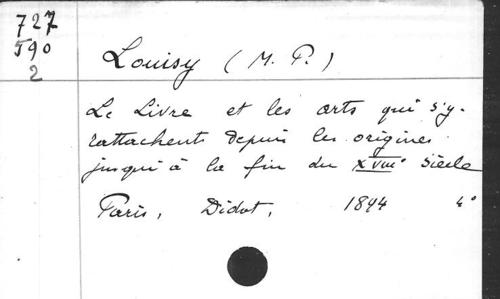 727
590
2
Louisy (M. P.)
Le Livre et les arts qui s'y-
rattachent depuis les origines
jusqu'à la fin du XVIIIe Siècle
Paris, Didot, 1894 4°